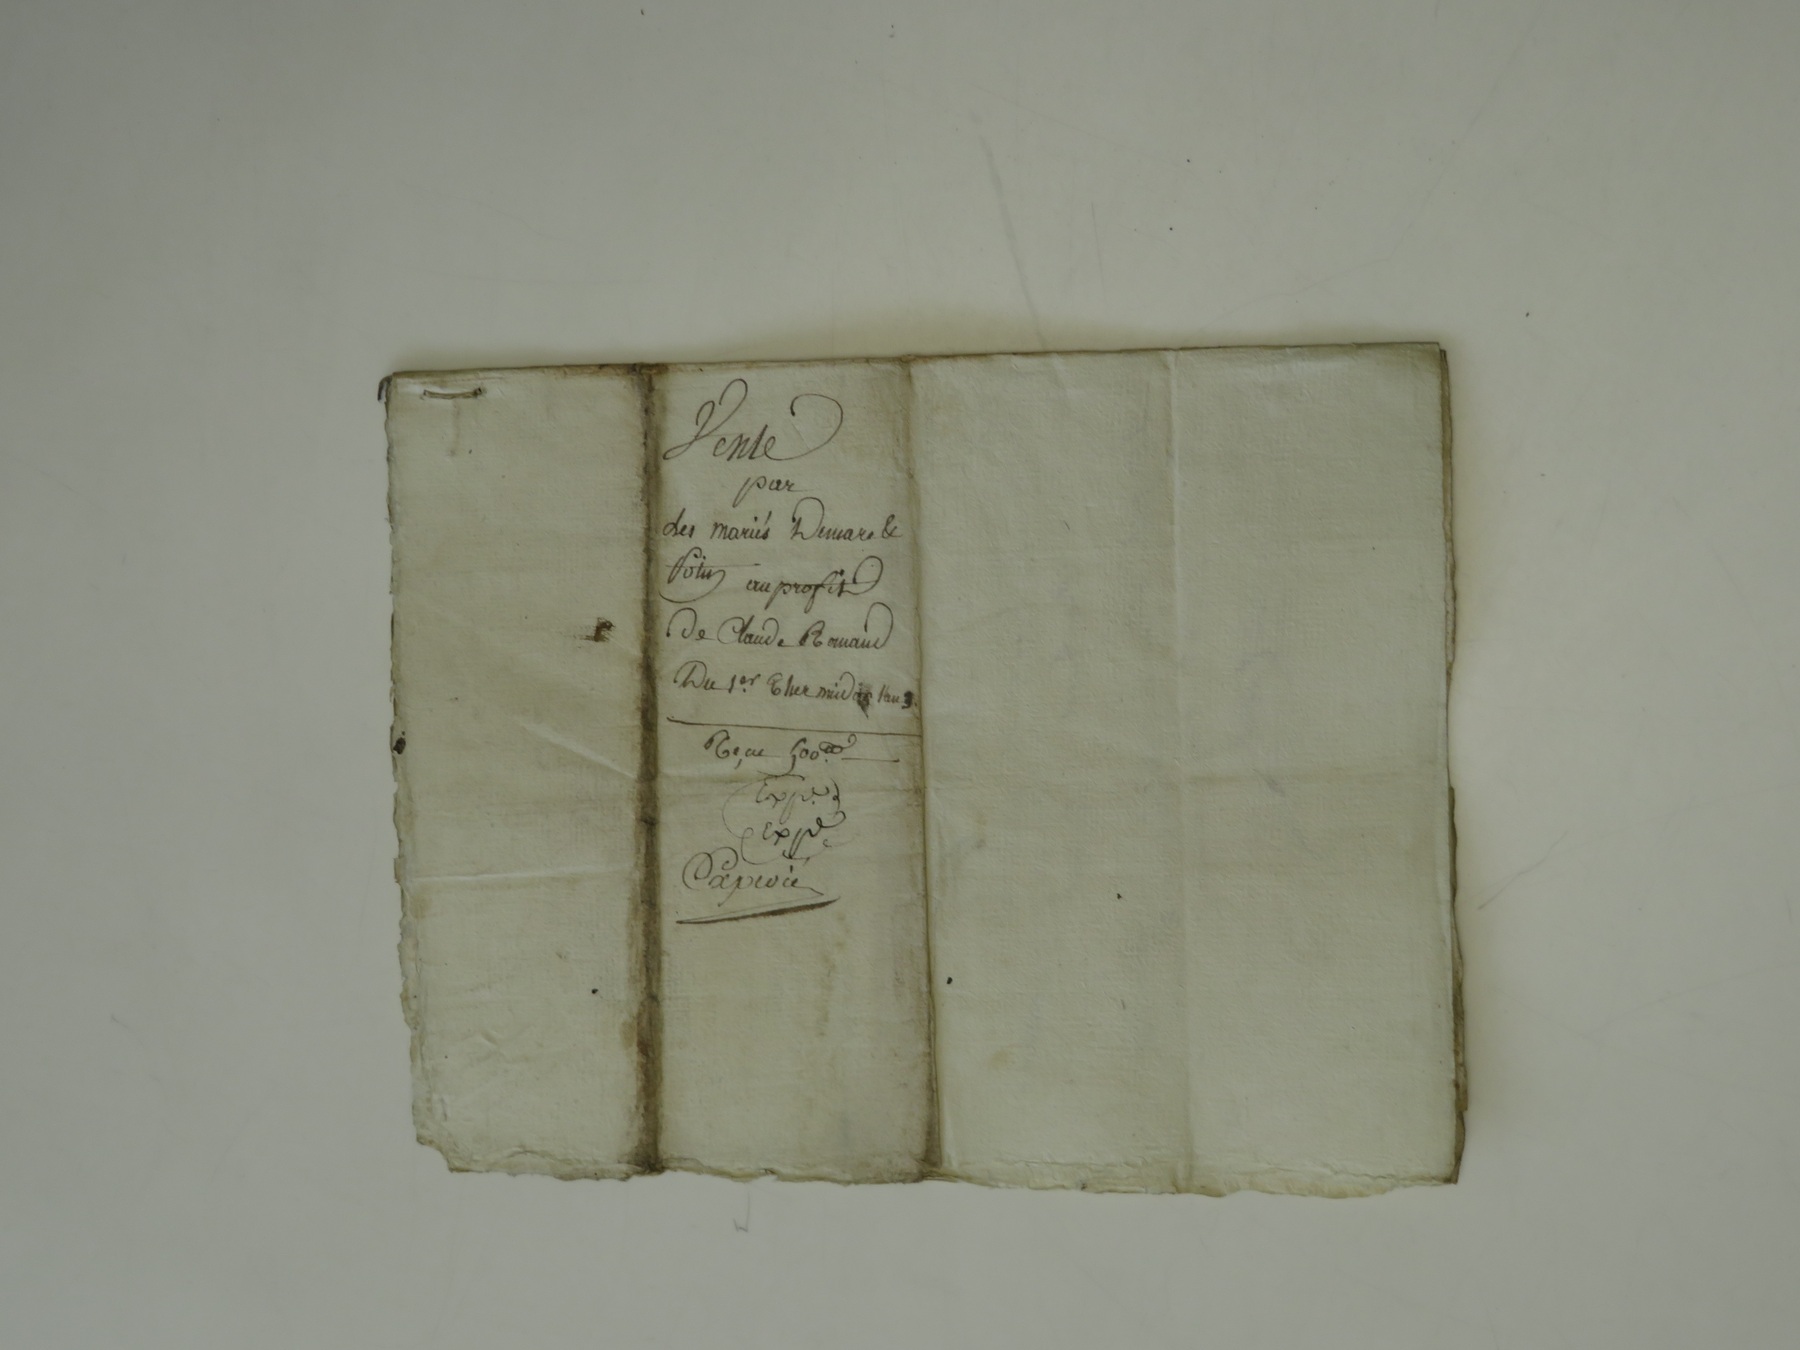 Vente
par
Les mariés Demare &
Potin au profit
De Claude Romand
Du 1.er Thermidor l'an 3.
Reçu 500
Exp.é
Exp.é